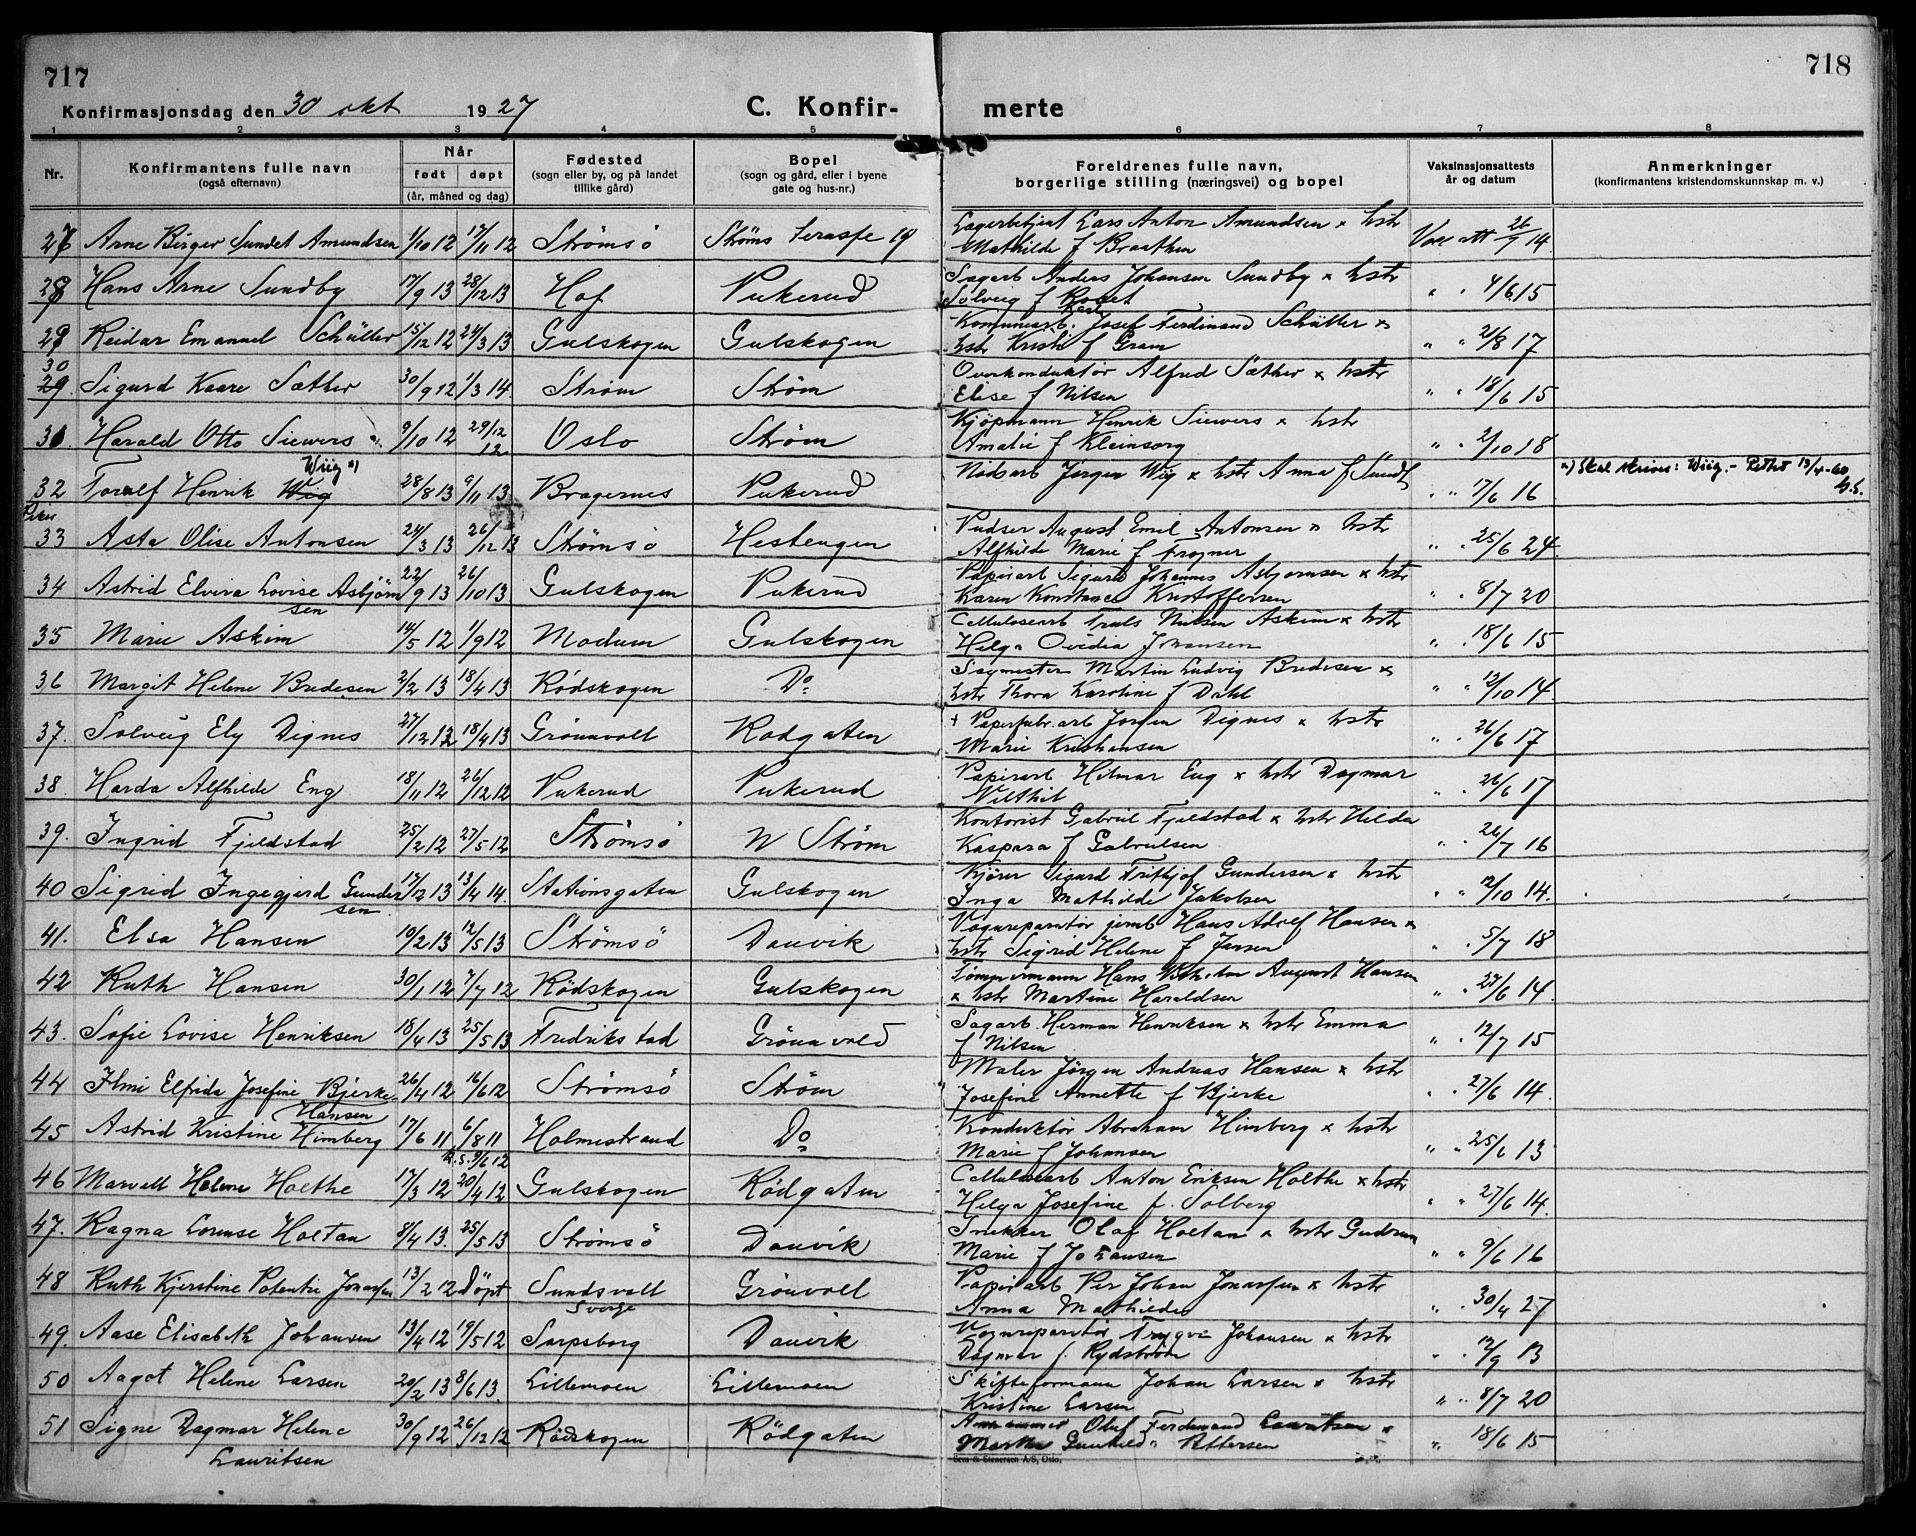 717
718
Konfirmasjonsdag den 30 okt 1927
C. Konfir-
merte
1 2 3 4 5 6 7 8
Nr.
Konfirmantens fulle navn
(også efternavn)
Når
født døpt
(år, måned og dag)
Fødested
(sogn eller by, og på landet
tillike gård)
Bopel
(sogn og gård, eller i byene
gate og hus-nr.)
Foreldrenes fulle navn,
borgerlige stilling (næringsvei) og bopel
Vaksinasjonsattests
år og datum
Anmerkninger
(konfirmantens kristendomskunnskap m. v.)
27 Arne Birger Sundet Amundsen 1/10 12 17/11 12 Strømsö Ströms terasse 19 Lagerbetjent Lars Anton Amundsen x hstr Vace att 26/9 14
Mathilde f Braathen
28 Hans Arne Sundby 17/9 13 28/12 13 Hof Pukerud Sagarb Anders Johansen Sundby x hstr " " 4/6 15
Solveig f
29 Reidar Emanuel Schütter 15/12 12 24/3 13 Gulskogen Gulskogen Kommunearb. Josef Ferdinand Schütter x " " 21/8 17
hstr Kristi f Gram
30
29. Sigurd Kaare Sæther 30/9 12 1/3 14 Strøm Strøm Overkonduktør Alfred Sæther x hstr " " 18/6 15
Elise f Nilsen
31 Harald Otto Siewers 9/10 12 29/12 12 Oslo Strøm Kjøpmann Henrik Siewers x hstr " " 2/10 18
Amalie f Kleinsorg
Wiig x)
32 Toralf Henrik Wig 28/8 13 9/11 13 Bragernes Pukerud Nödsarb Jørgen Wig x hstr Anna f Sundt " " 17/6 16 x) Skal skrives: Wiig. - Rettet 19/4-60
Piker
33 Asta Olise Antonsen 24/3 13 26/12 13 Strömsö Hestengen Pudser August Emil Antonsen x hstr " " 25/6 24
Alfhilde Marie f Frogner
34 Astrid Elvira Lovise Asbjörn 22/9 13 26/10 13 Gulskogen Pukerud Papirarb Sigurd Johannes Asbjørnsen x hstr " " 8/7 20
sen Karen Konstance Kristoffersen
35 Marie Askim 14/5 12 1/9 12 Modum Gulskogen Cellulosearb Truls Nilsen Askim x hstr " " 18/6 15
Helga Ovidia Johansen
36 Margit Helene Bredesen 2/2 13 18/4 13 Rödskogen Do Sagmester Martin Ludvig Bredesen x " " 12/10 14
hstr Thora Karoline f Dahl
37. Solveig Ely Dignes 27/12 12 18/4 13 Grönnvoll Rödgaten + Papirfabr.arb Jørgen Dignes x hstr " " 26/6 17
Marie Kristiansen
38. Harda Alfhilde Eng 18/11 12 26/12 12 Pukerud Pukerud Papirarb Hilmar Eng x hstr Dagmar " " 26/6 17
39. Ingrid Fjeldstad 25/2 12 27/5 12 Strömsö N Strøm Kontorist Gabriel Fjeldstad x hstr Hilda " " 26/7 16
Kaspara f Gabrielsen
40 Sigrid Ingegjerd Gunder 17/12 13 13/4 14. Stationsgaten Gulskogen Kjører Sigurd Frithjof Gundersen x hstr " " 12/10 14.
sen Inga Mathilde Jakobsen
41. Elsa Hansen 19/2 13 12/5 13 Strømsö Danvik Vognreparatør jernb Hans Adolf Hansen x " " 5/7 18
hstr Sigrid Helene f Jensen
42 Ruth Hansen 30/1 12 7/7 12 Rödskogen Gulskogen Tømmermann Hans Vilhelm August Hansen " " 27/6 14
x hstr Martine Haraldsen
43. Sofie Lovise Henriksen 18/4 13 25/5 13 Fredrikstad Grönnvold Sagarb. Herman Henriksen x hstr Emma " " 12/7 15
f Nilsen
44 Ilmi Elfrida Josefine Bjerke 26/4 12 16/6 12 Strömsö Strøm Maler Jörgen Andreas Hansen x hstr " " 27/6 14
Hansen Josefine Annette f Bjerke
45 Astrid Kristine Himberg 17/6 11 6/8 11 Holmestrand Do Konduktør Abraham Himberg x hstr " " 25/6 13
Marie f Johansen
46 Marvell Helene Holthe 17/3 12 20/4 12 Gulskogen Rödgaten Cellulosearb Anton Eriksen Holthe x hstr " " 27/6 14.
Helga Josefine f. Solberg
47. Ragna Lovise Holtan 8/4 13. 25/5 13 Strømsö Danvik Snekker Olaf Holtan x hstr Gudrun " " 9/6 16
Marie f Johansen
48 Ruth Kjerstine Potentie Jonassen 13/2 12 Döpt Sundsvall Grönvoll Papirarb Per Johan Jonassen x hstr " " 30/4 27
Sverge Anna Mathilde
49. Aase Elisabeth Johansen 13/4 12 19/5 12 Sarpsborg Danvik Vognreparatør Trygve Johansen x hstr " " 12/9 13
Dagmar f. Rydström
50 Aagot Helene Larsen 20/2 13 8/6 13. Lillemoen Lillemoen Skifteformann Johan Larsen x hstr " " 8/7 20
Kristine Larsen
51 Signe Dagmar Helene 30/9 12 26/12 12 Rødskogen Rödgaten Oluf Ferdinand Lauritsen x " 18/6 15
Lauritsen Martha Gunhild Pettersen
Sem & Stenersen A/S, Oslo.